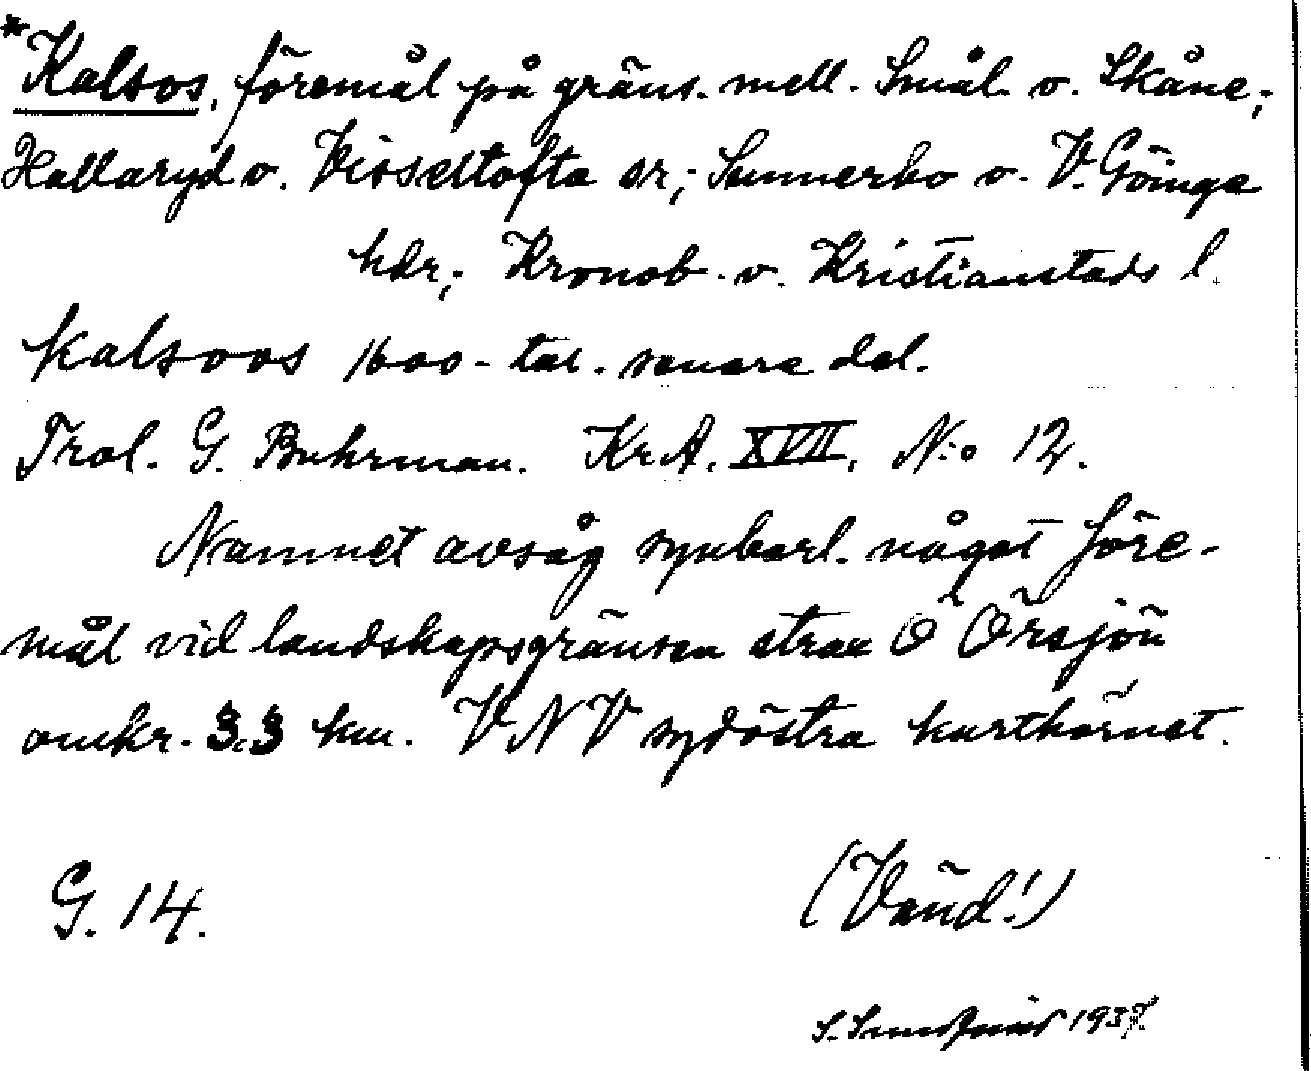 *Kalsos, föremål på gräns. mell. Smål. o. Skåne;
Hallaryd o. Visseltofta sr; Sunnerbo o. V. Göinge
hdr; Kronob. o. Kristianstads l.
Kalsoos 1600-tal. senare del.
Trol. G. Buhrman. Kr.A. XVII, N:o 12.
Namnet avsåg synbarl. något före-
mål vid landskapsgränsen strax Ö Örsjön
omkr. 3.3 km. VNV sydöstra karthörnet.
G. 14.
(Vänd!)
S. 193